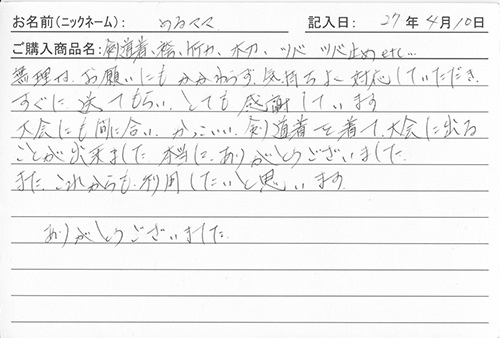 お名前(ニックネーム): ゆるママ 記入日: 27年4月10日
ご購入商品名: 剣道着、袴、竹刀、木刀、ツバ ツバ止め etc…
無理な、お願いにもかかわらず、気持ちよく対応していただき、
すぐに送ってもらい、とても感謝しています
大会にも間に合い、かっこいい、剣道着を着て、大会に出る
ことが出来ました 本当に、ありがとうございました。
また、これからも、利用したいと思います。
ありがとうございました。